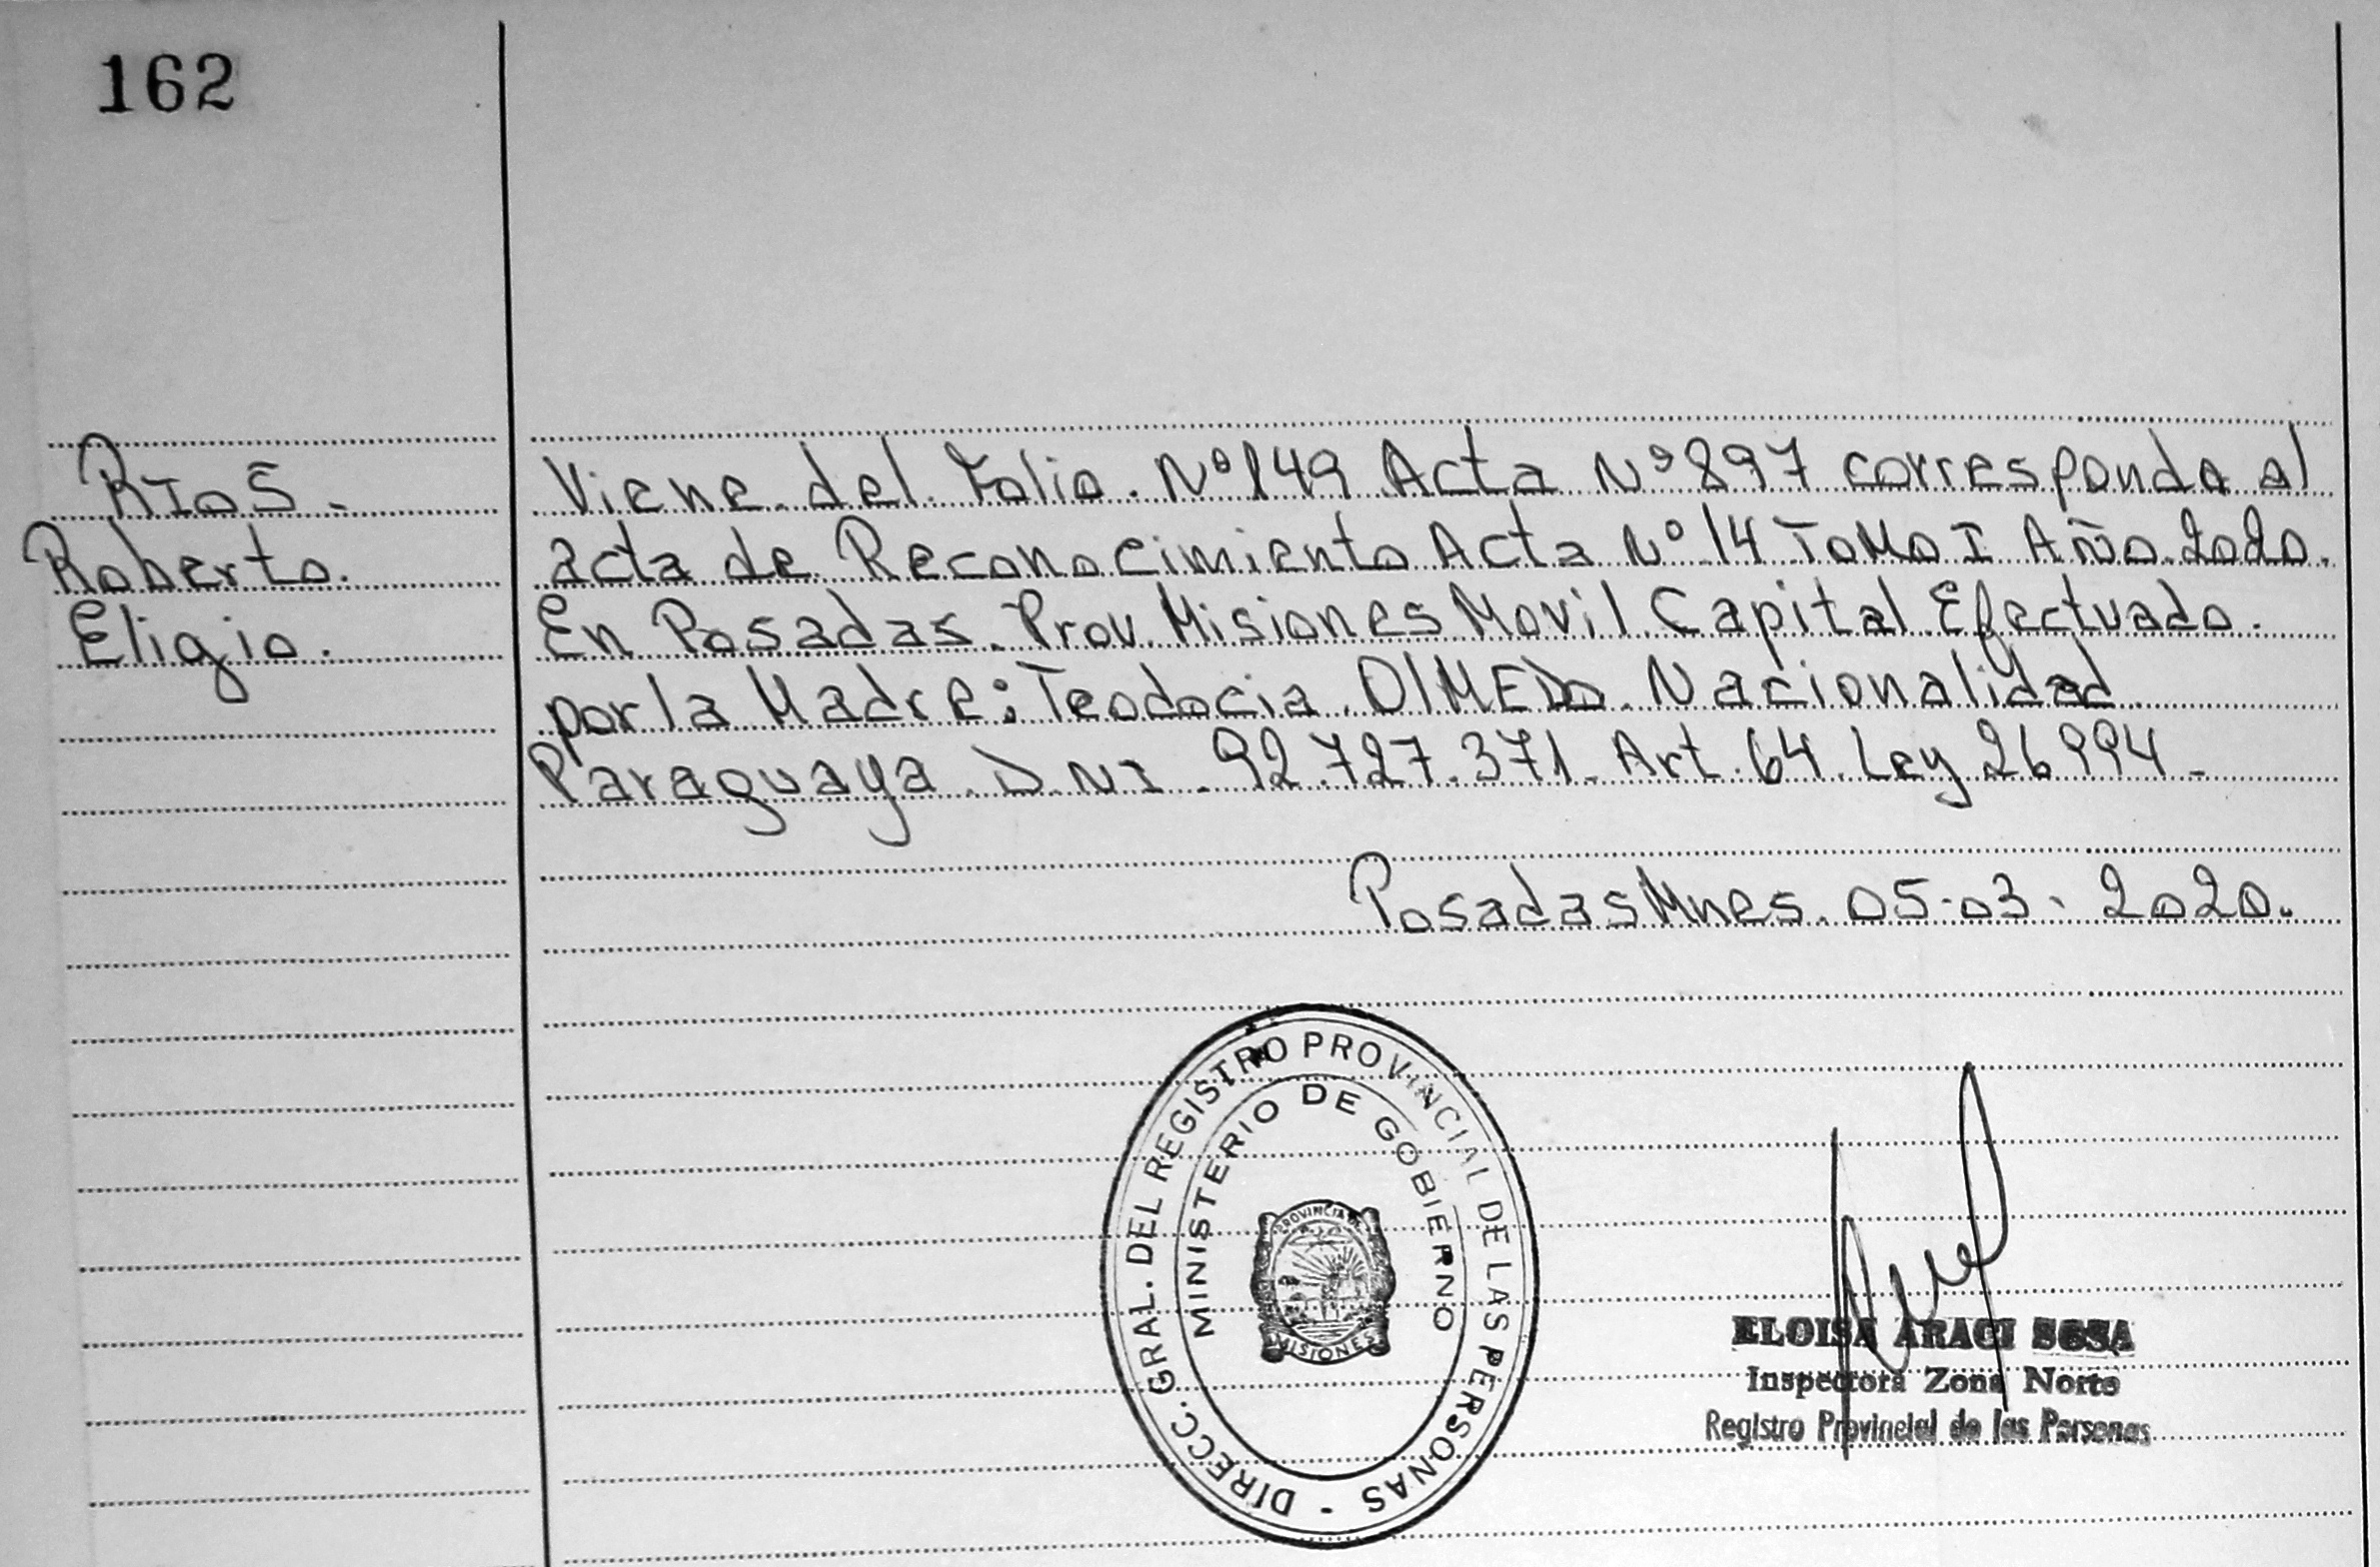 162
RIOS -
Roberto.
Eligio.
Viene del Folio. Nº149 Acta Nº897 corresponda al
acta de Reconocimiento Acta Nº14 ToMo I Año 2020.
En Posadas. Prov. Misiones Movil Capital Efectuado.
por la Madre: Teodocia. OlMEDO. Nacionalidad
Paraguaya. D.N.I. 92.727.371. Art. 64. Ley 26994 -
Posadas Mnes. 05-03-2020.
DIRECC. GRAL. DEL REGISTRO PROVINCIAL DE LAS PERSONAS -
MINISTERIO DE GOBIERNO
PROVINCIA DE
MISIONES
ELOISA ARACI SOSA
Inspectora Zona Norte
Registro Provincial de las Personas